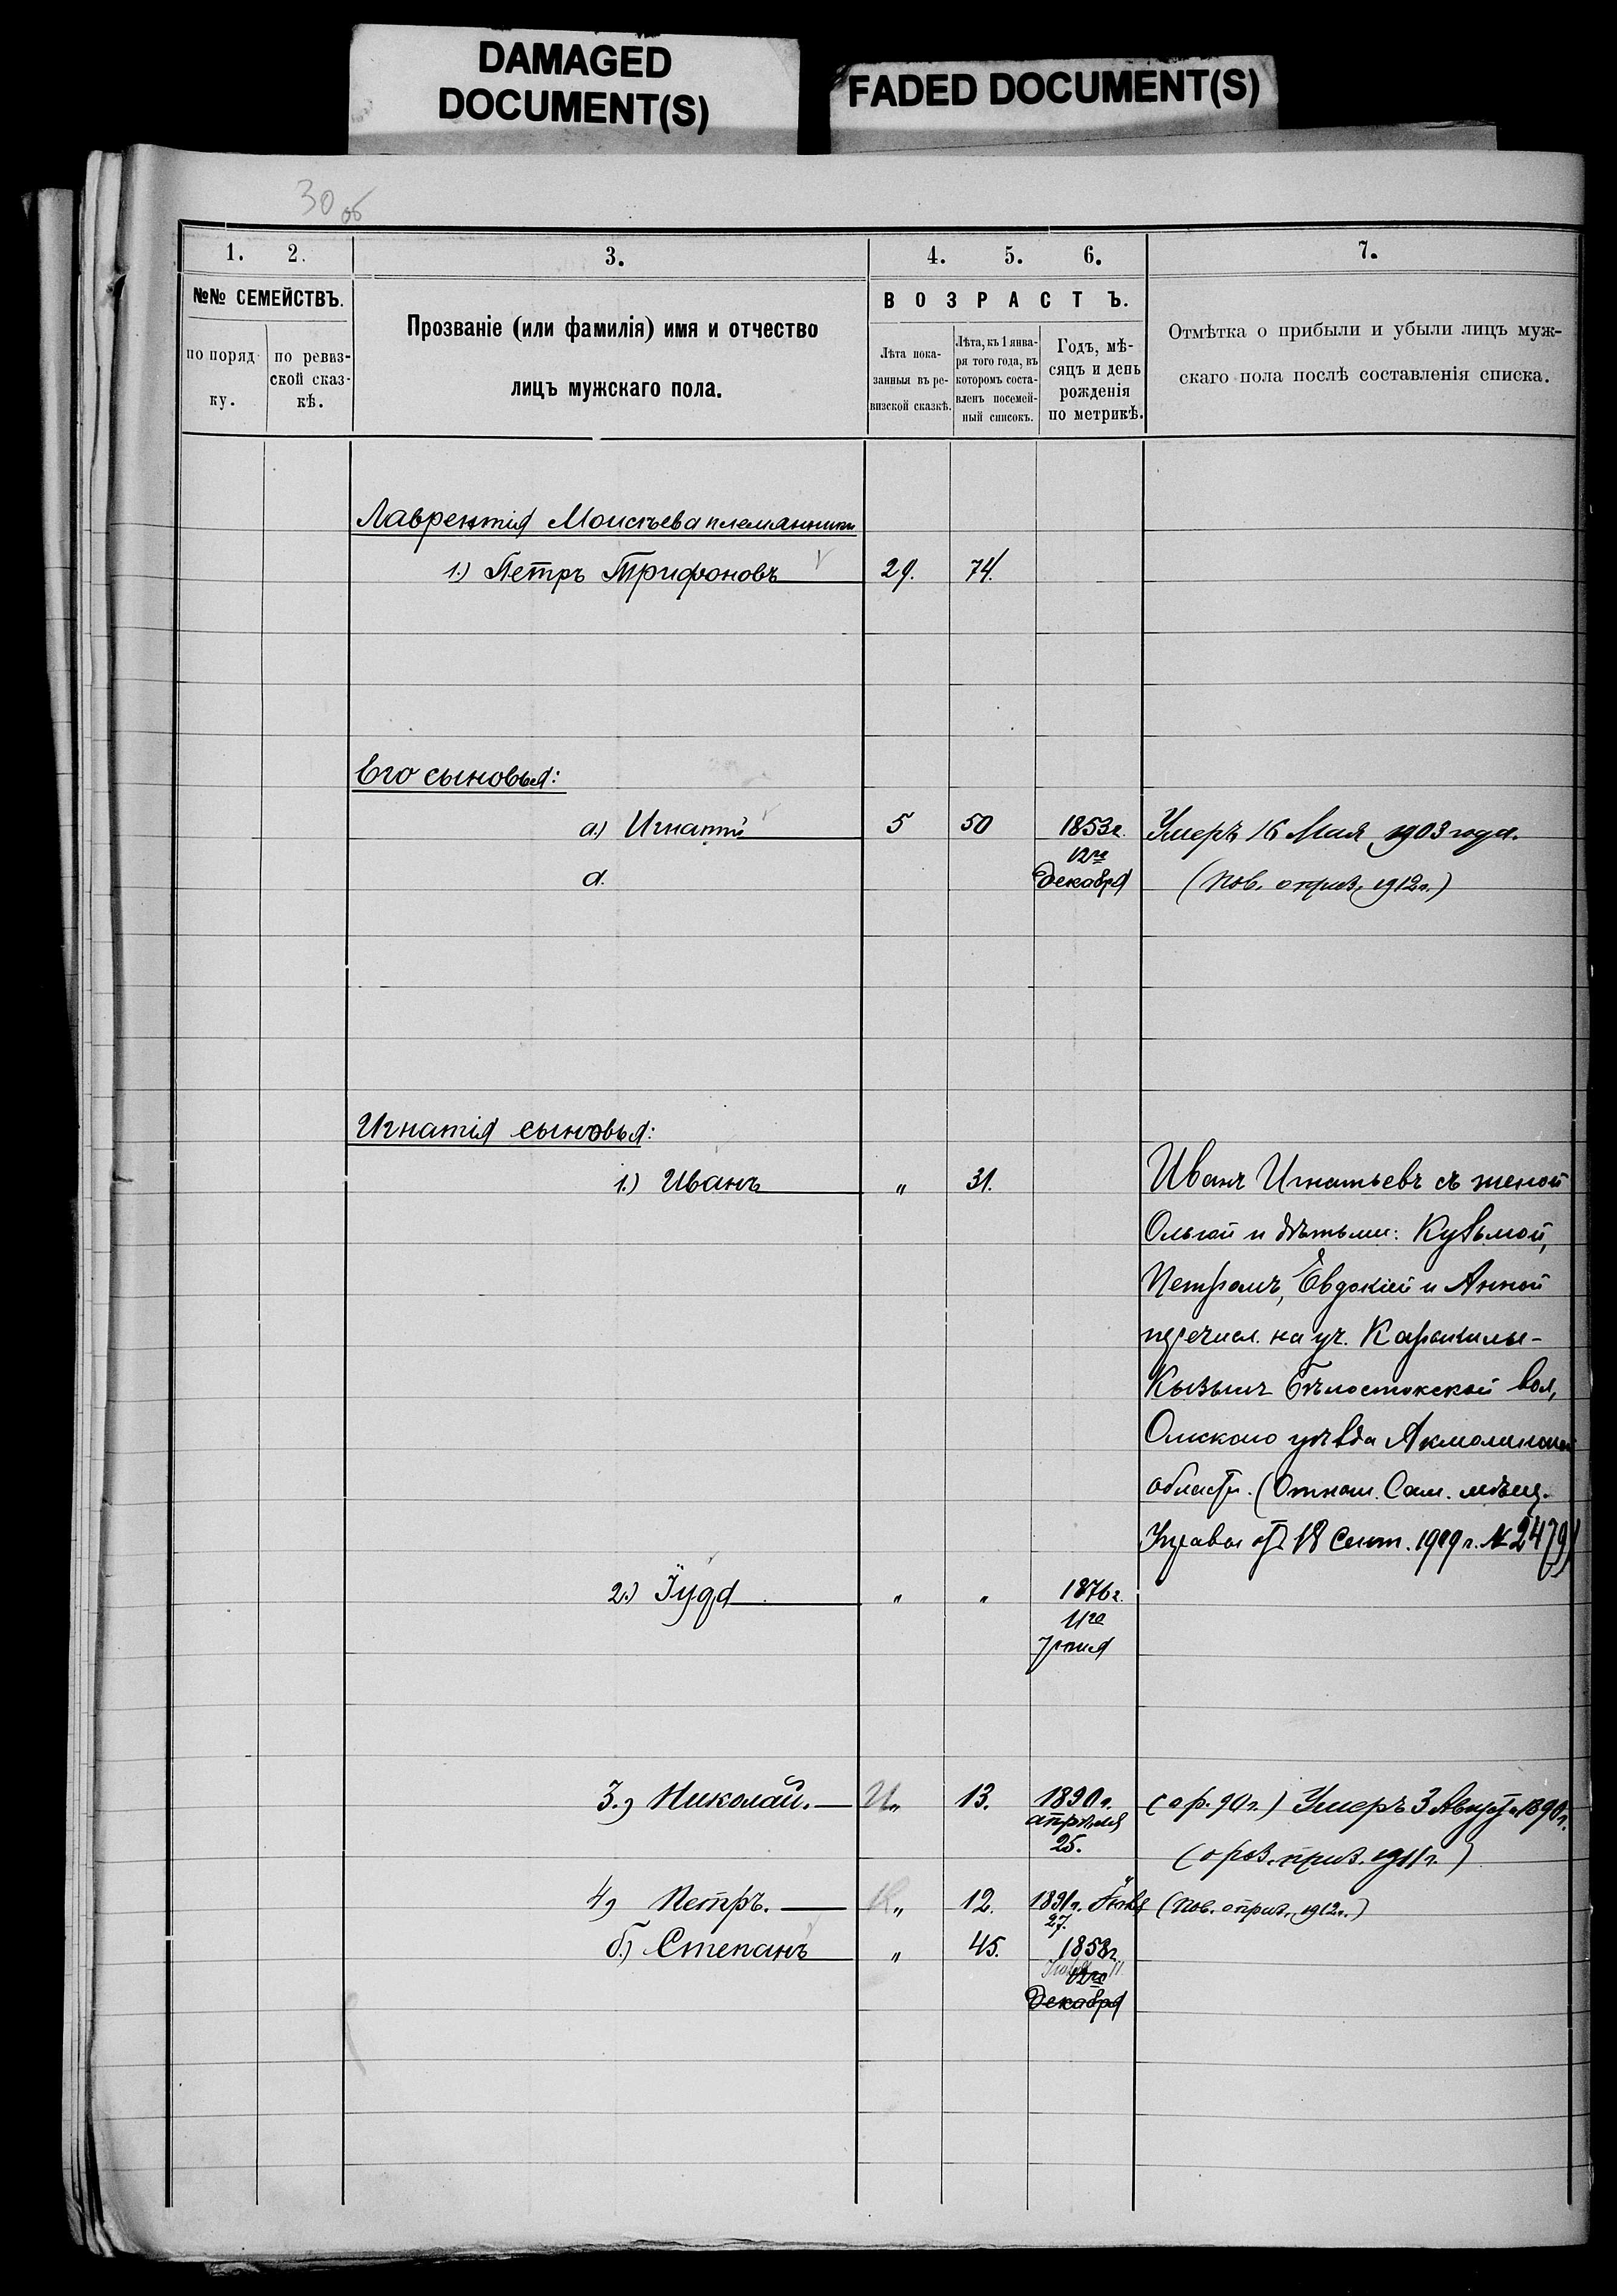 DAMAGED
DOCUMENT(S)
FADED DOCUMENT(S)
30 об
1. 2. 3. 4. 5. 6. 7.
№№ СЕМЕЙСТВЪ.
по поряд-
ку.
по ревиз-
ской сказ-
кѣ.
Прозваніе (или фамилія) имя и отчество
лицъ мужскаго пола.
ВОЗРАСТЪ.
Лѣта пока-
занныя въ ре-
визской сказкѣ.
Лѣта, къ 1 янва-
ря того года, въ
которомъ соста-
вленъ посемей-
ный списокъ.
Годъ, мѣ-
сяцъ и день
рожденія
по метрикѣ.
Отмѣтка о прибыли и убыли лицъ муж-
скаго пола послѣ составленія списка.
Лаврентія Моисѣева племянники
1.) Петръ Трифоновъ 29. 74.
Его сыновья:
а.) Игнатій 5 50 1853г. Умеръ 16 Мая 1903 года.
12го
декабря (Пов. о приз. 1912г.)
Игнатія сыновья:
1.) Иванъ " 31. Иванъ Игнатьевъ съ женой
Ольгой и дѣтьми: Кузьмой,
Петромъ, Евдокіей и Анной
перечисл. на уч.
Кызылъ Бѣлостокской вол,
Омскаго уѣзда Акмолинской
области. (Отнош. Сам. мѣщ.
Управы отъ 18 Сент. 1909 г. № 2479)
2.) Іуда " " 1876г.
11го
Іюня
3.) Николай. " 13. 1890г. (о р. 90г.) Умеръ 3 Августа 1890г.
апрѣля
25. (о роз. приз. 1911г.)
4) Петръ. " 12. 1891г. Іюня (Пов. о приз. 1912г.)
27.
б.) Степанъ " 45. 1858г.
12го
Декабря